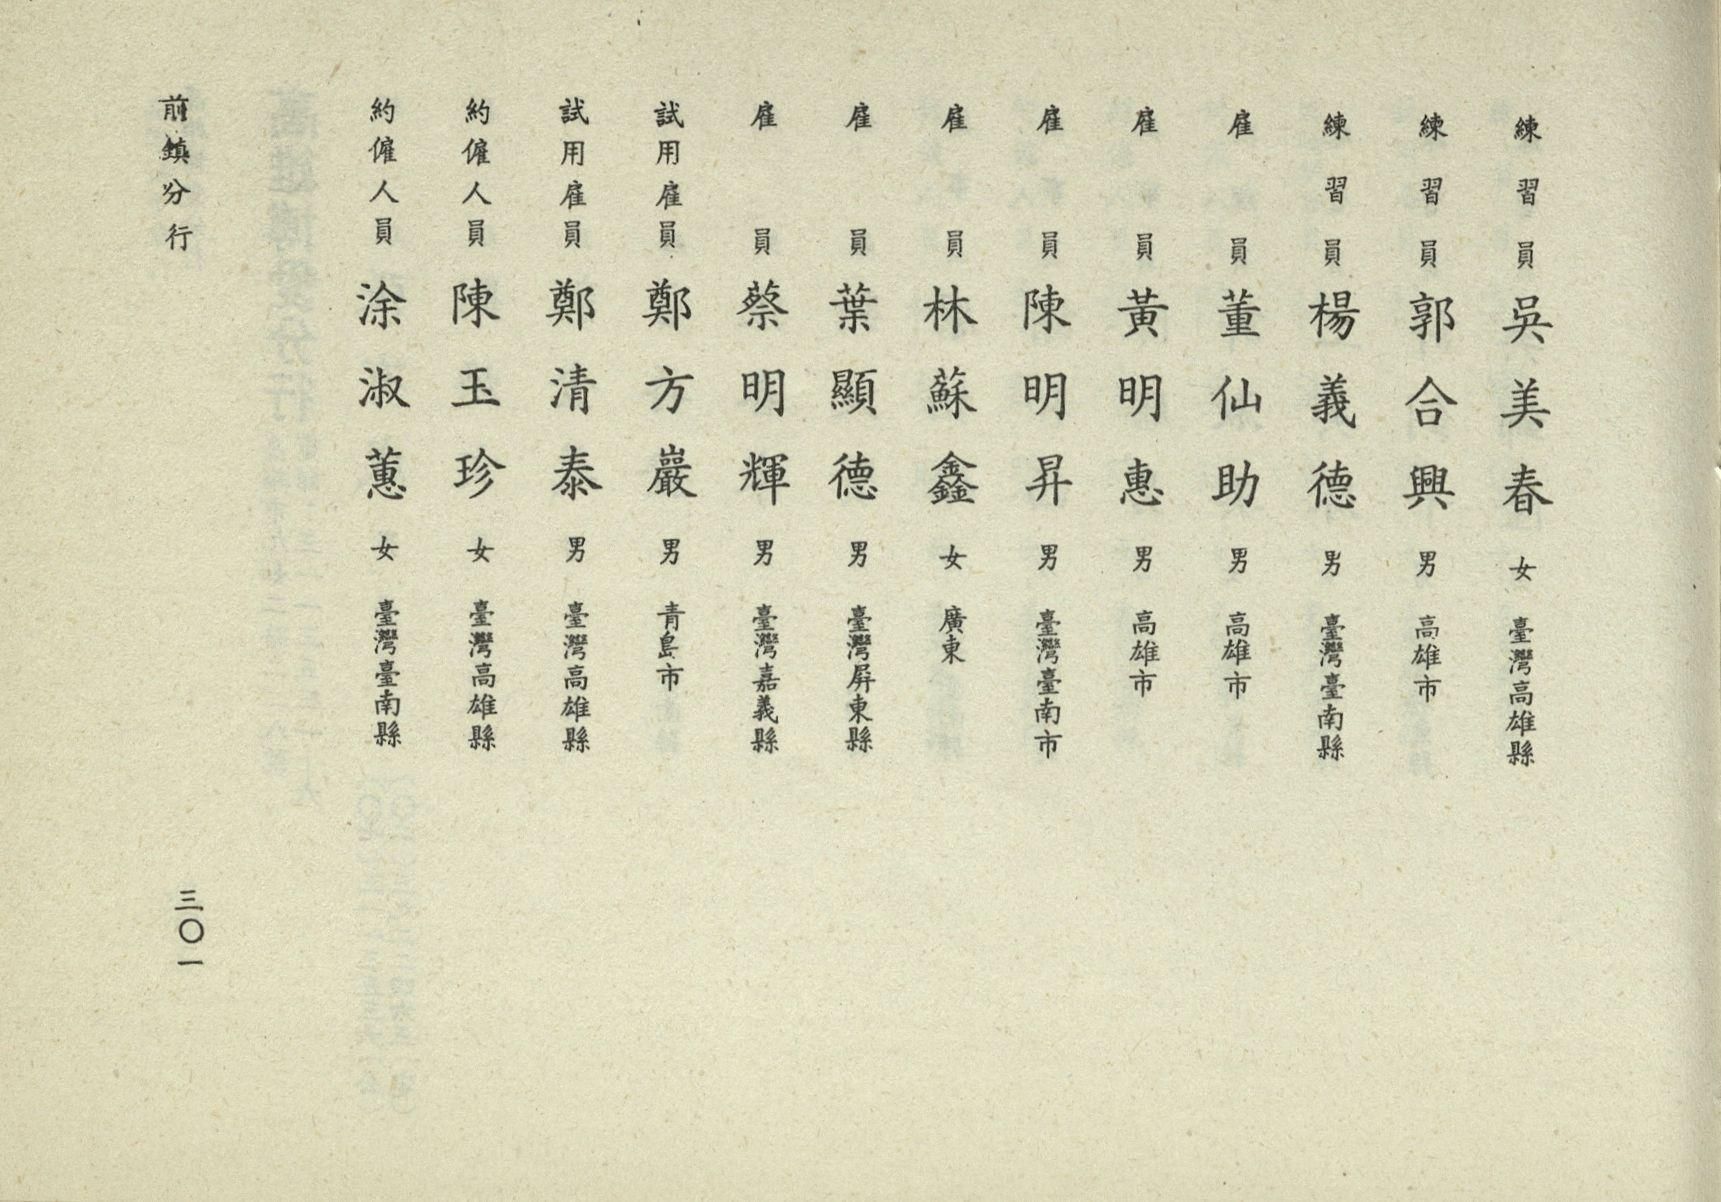 練習員 吳美春 女 臺灣高雄縣
練習員 郭合興 男 高雄市
練習員 楊義德 男 臺灣臺南縣
雇員 董仙助 男 高雄市
雇員 黃明惠 男 高雄市
雇員 陳明昇 男 臺灣臺南市
雇員 林蘇鑫 女 廣東
雇員 葉顯德 男 臺灣屏東縣
雇員 蔡明輝 男 臺灣嘉義縣
試用雇員 鄭方巖 男 青島市
試用雇員 鄭清泰 男 臺灣高雄縣
約僱人員 陳玉珍 女 臺灣高雄縣
約僱人員 涂淑蕙 女 臺灣臺南縣
前鎮分行
三〇一